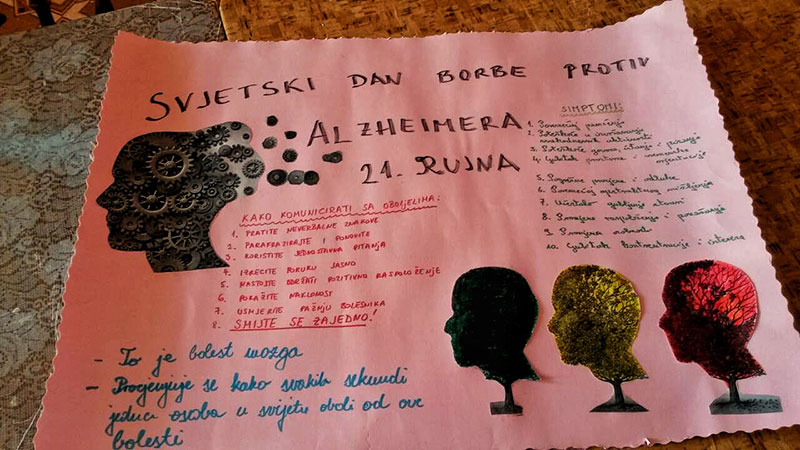 SVJETSKI DAN BORBE PROTIV
ALZHEIMERA
21. RUJNA
KAKO KOMUNICIRATI SA OBOLJELIMA:
1. PRATITE NEVERBALNE ZNAKOVE
2. PARAFRAZIRAJTE I PONOVITE
3. KORISTITE JEDNOSTAVNA PITANJA
4. IZRECITE PORUKU JASNO
5. NASTOJTE ODRŽATI POZITIVNO RASPOLOŽENJE
6. POKAŽITE NAKLONOST
7. USMJERITE PAŽNJU BOLESNIKA
8. SMIJTE SE ZAJEDNO!
- To je bolest mozga
- Procjenjuje se kako svakih sekundi
jedna osoba u svijetu oboli od ove
bolesti
SIMPTOMI:
1. Poremećaj pamćenja
2. Poteškoće u
svakodnevnih aktivnosti
3. Poteškoće govora, čitanja i pisanja
4. Gubitak prostorne i vremenske
orijentacije
5. Pogrešne procjene i odluke
6. Poremećaj apstraktnog mišljenja
7. Učestalo gubljenje stvari
8. Promjene raspoloženja i ponašanja
9. Promjena osobnosti
10. Gubitak koncentracije i interesa